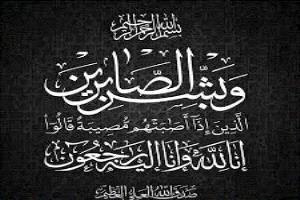 بسم الله الرحمن الرحيم
وَبَشِّرِ الصَّابِرِينَ
الَّذِينَ إِذَا أَصَابَتْهُم مُّصِيبَةٌ قَالُوا
إِنَّا لِلَّهِ وَإِنَّا إِلَيْهِ رَاجِعُونَ
صدق الله العلي العظيم